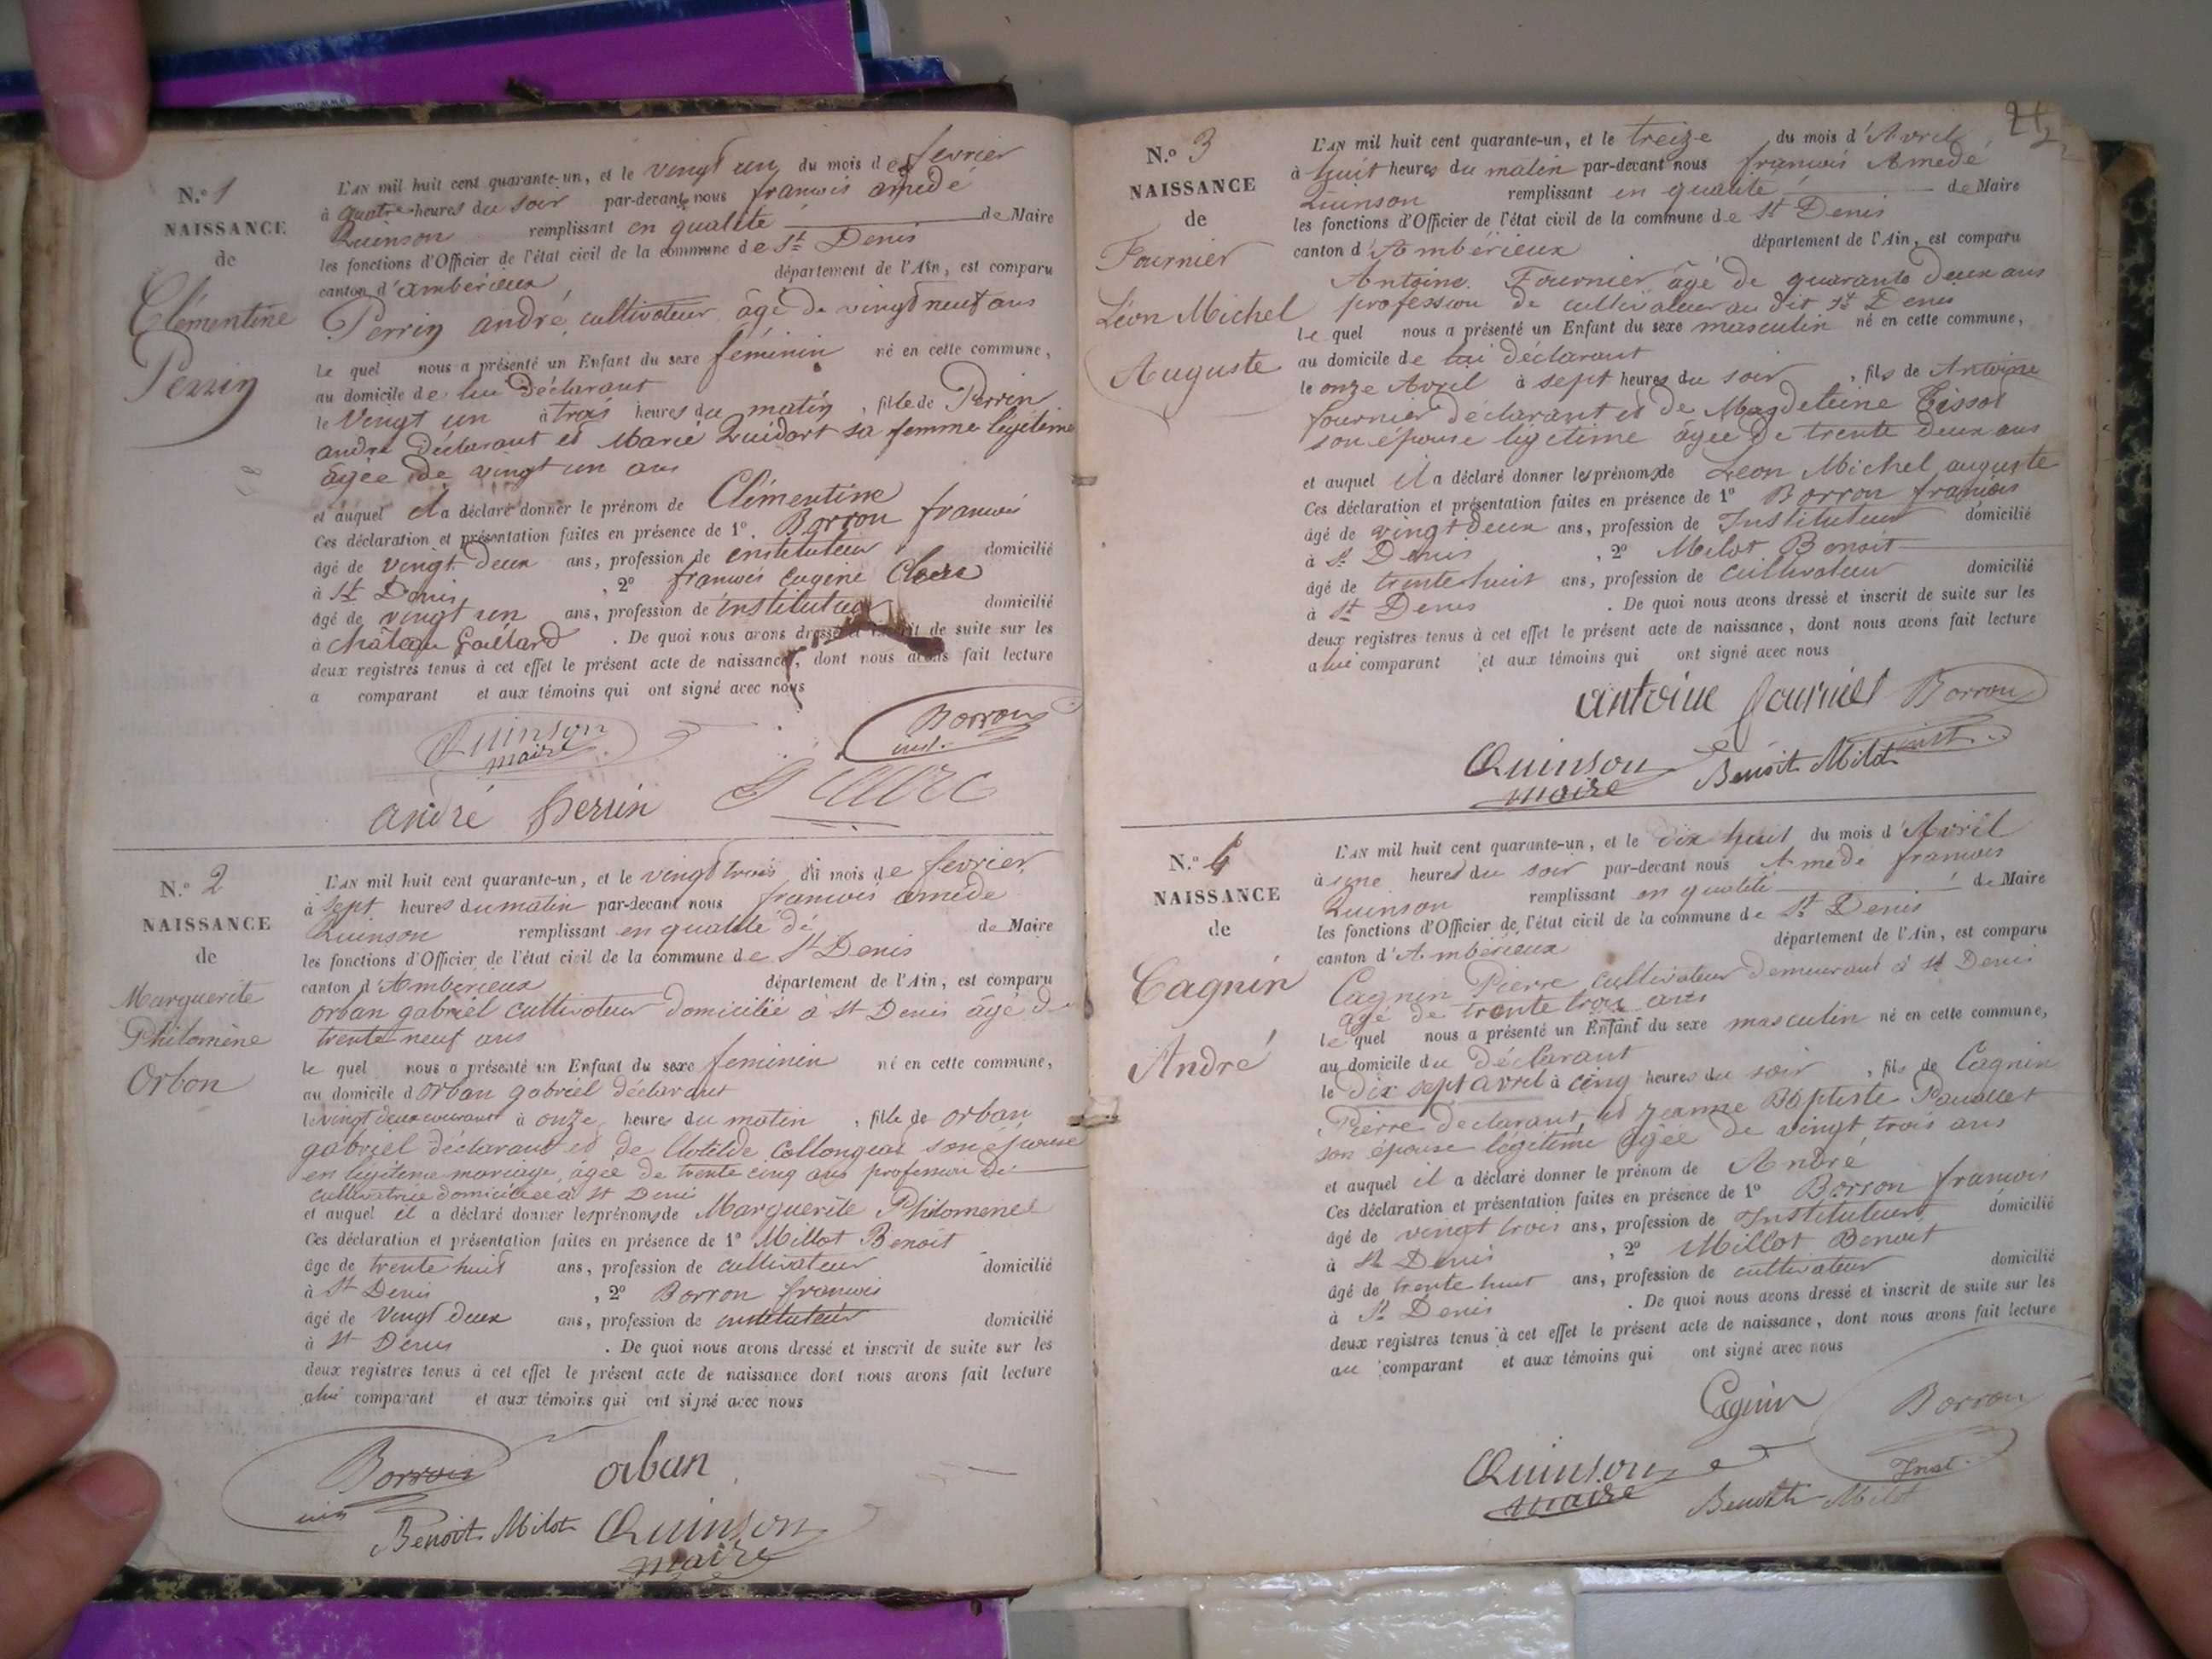 N.o 1
NAISSANCE
de
Clémentine
Perrin
L'AN mil huit cent quarante-un, et le vingt un du mois de fevrier
à quatre heures du soir par-devant nous francois amédé
Quinson remplissant en qualité de Maire
les fonctions d'Officier de l'état civil de la commune de St Denis
canton d'ambérieux département de l'Ain, est comparu
Perrin andré, cultivateur âgé de vingt neuf ans
le quel nous a présenté un Enfant du sexe féminin né en cette commune,
au domicile de lui déclarant
le Vingt un à trois heures du matin, fille de Perrin
andré déclarant et Marie Quidort sa femme legitime
âgée de vingt un ans
et auquel il a déclaré donner le prénom de Clémentine
Ces déclaration et présentation faites en présence de 1o. Borron francois
âgé de vingt deux ans, profession de instituteur domicilié
à St Denis, 2o francois Eugine Clerc
âgé de vingt un ans, profession de instituteur domicilié
à château Gaillard. De quoi nous avons dressé et inscrit de suite sur les
deux registres tenus à cet effet le présent acte de naissance, dont nous avons fait lecture
a comparant et aux témoins qui ont signé avec nous
Quinson Borron
maire inst.
andré Perrin Clerc
N.o 2
NAISSANCE
de
Marguerite
Philomène
Orbon
L'AN mil huit cent quarante-un, et le vingt trois du mois de fevrier,
à sept heures du matin par-devant nous francois amédé
Quinson remplissant en qualité dé de Maire
les fonctions d'Officier de l'état civil de la commune de St Denis
canton d'Ambérieux département de l'Ain, est comparu
orban gabriel cultivateur domicilié à St Denis âgé de
trente neuf ans
le quel nous a présenté un Enfant du sexe feminin né en cette commune,
au domicile d orban gabriel déclarant
le vingt deux courant à onze heures du matin, fille de orban
gabriel déclarant et de Clotilde Collonges son épouse
en legitime mariage, âgée de trente cinq ans profession de
cultivatrice domiciliée à St Denis
et auquel il a déclaré donner les prénoms de Marguerite Philomene
Ces déclaration et présentation faites en présence de 1o Millot Benoit
âgé de trente huit ans, profession de cultivateur domicilié
à St Denis, 2o Borron francois
âgé de vingt deux ans, profession de instituteur domicilié
à St Denis. De quoi nous avons dressé et inscrit de suite sur les
deux registres tenus à cet effet le présent acte de naissance dont nous avons fait lecture
a lui comparant et aux témoins qui ont signé avec nous
Borron orban
Benoit Milot Quinson
maire
N.o 3
NAISSANCE
de
Fournier
Léon Michel
Auguste
L'AN mil huit cent quarante-un, et le treize du mois d'Avril
à huit heures du matin par-devant nous francois Amedé
Quinson remplissant en qualité de Maire
les fonctions d'Officier de l'état civil de la commune de St Denis
canton d'Ambérieux département de l'Ain, est comparu
Antoine Fournier âgé de quarante deux ans
profession de cultivateur au dit St Denis
le quel nous a présenté un Enfant du sexe masculin né en cette commune,
au domicile de lui déclarant
le onze Avril à sept heures du soir, fils de Antoine
fournier déclarant et de Magdeleine Tissot
son épouse légitime âgée de trente deux ans
et auquel il a déclaré donner les prénoms de Léon Michel auguste
Ces déclaration et présentation faites en présence de 1o Borron francois
âgé de vingt deux ans, profession de Instituteur domicilié
à St Denis, 2o Milot Benoit
âgé de trente huit ans, profession de cultivateur domicilié
à St Denis. De quoi nous avons dressé et inscrit de suite sur les
deux registres tenus à cet effet le présent acte de naissance, dont nous avons fait lecture
a lui comparant et aux témoins qui ont signé avec nous
antoine fournier Borron
Quinson Benoit Milot inst.
maire
N.o 4
NAISSANCE
de
Cagnin
André
L'AN mil huit cent quarante-un, et le dix huit du mois d'Avril
à une heures du soir par-devant nous Amedé francois
Quinson remplissant en qualité de Maire
les fonctions d'Officier de l'état civil de la commune de St Denis
canton d'Ambérieux département de l'Ain, est comparu
Cagnin Pierre cultivateur demeurant à St Denis
âgé de trente trois ans
le quel nous a présenté un Enfant du sexe masculin né en cette commune,
au domicile du déclarant
le dix sept avril à cinq heures du soir, fils de Cagnin
Pierre declarant, et jeanne Baptiste
son épouse légitime âgée de vingt trois ans
et auquel il a déclaré donner le prénom de André
Ces déclaration et présentation faites en présence de 1o Borron francois
âgé de vingt trois ans, profession de Instituteur domicilié
à St Denis, 2o Millot Benoit
âgé de trente huit ans, profession de cultivateur domicilié
à St Denis. De quoi nous avons dressé et inscrit de suite sur les
deux registres tenus à cet effet le présent acte de naissance, dont nous avons fait lecture
au comparant et aux témoins qui ont signé avec nous
Cagnin Borron
Quinson Inst.
maire Benoit Milot